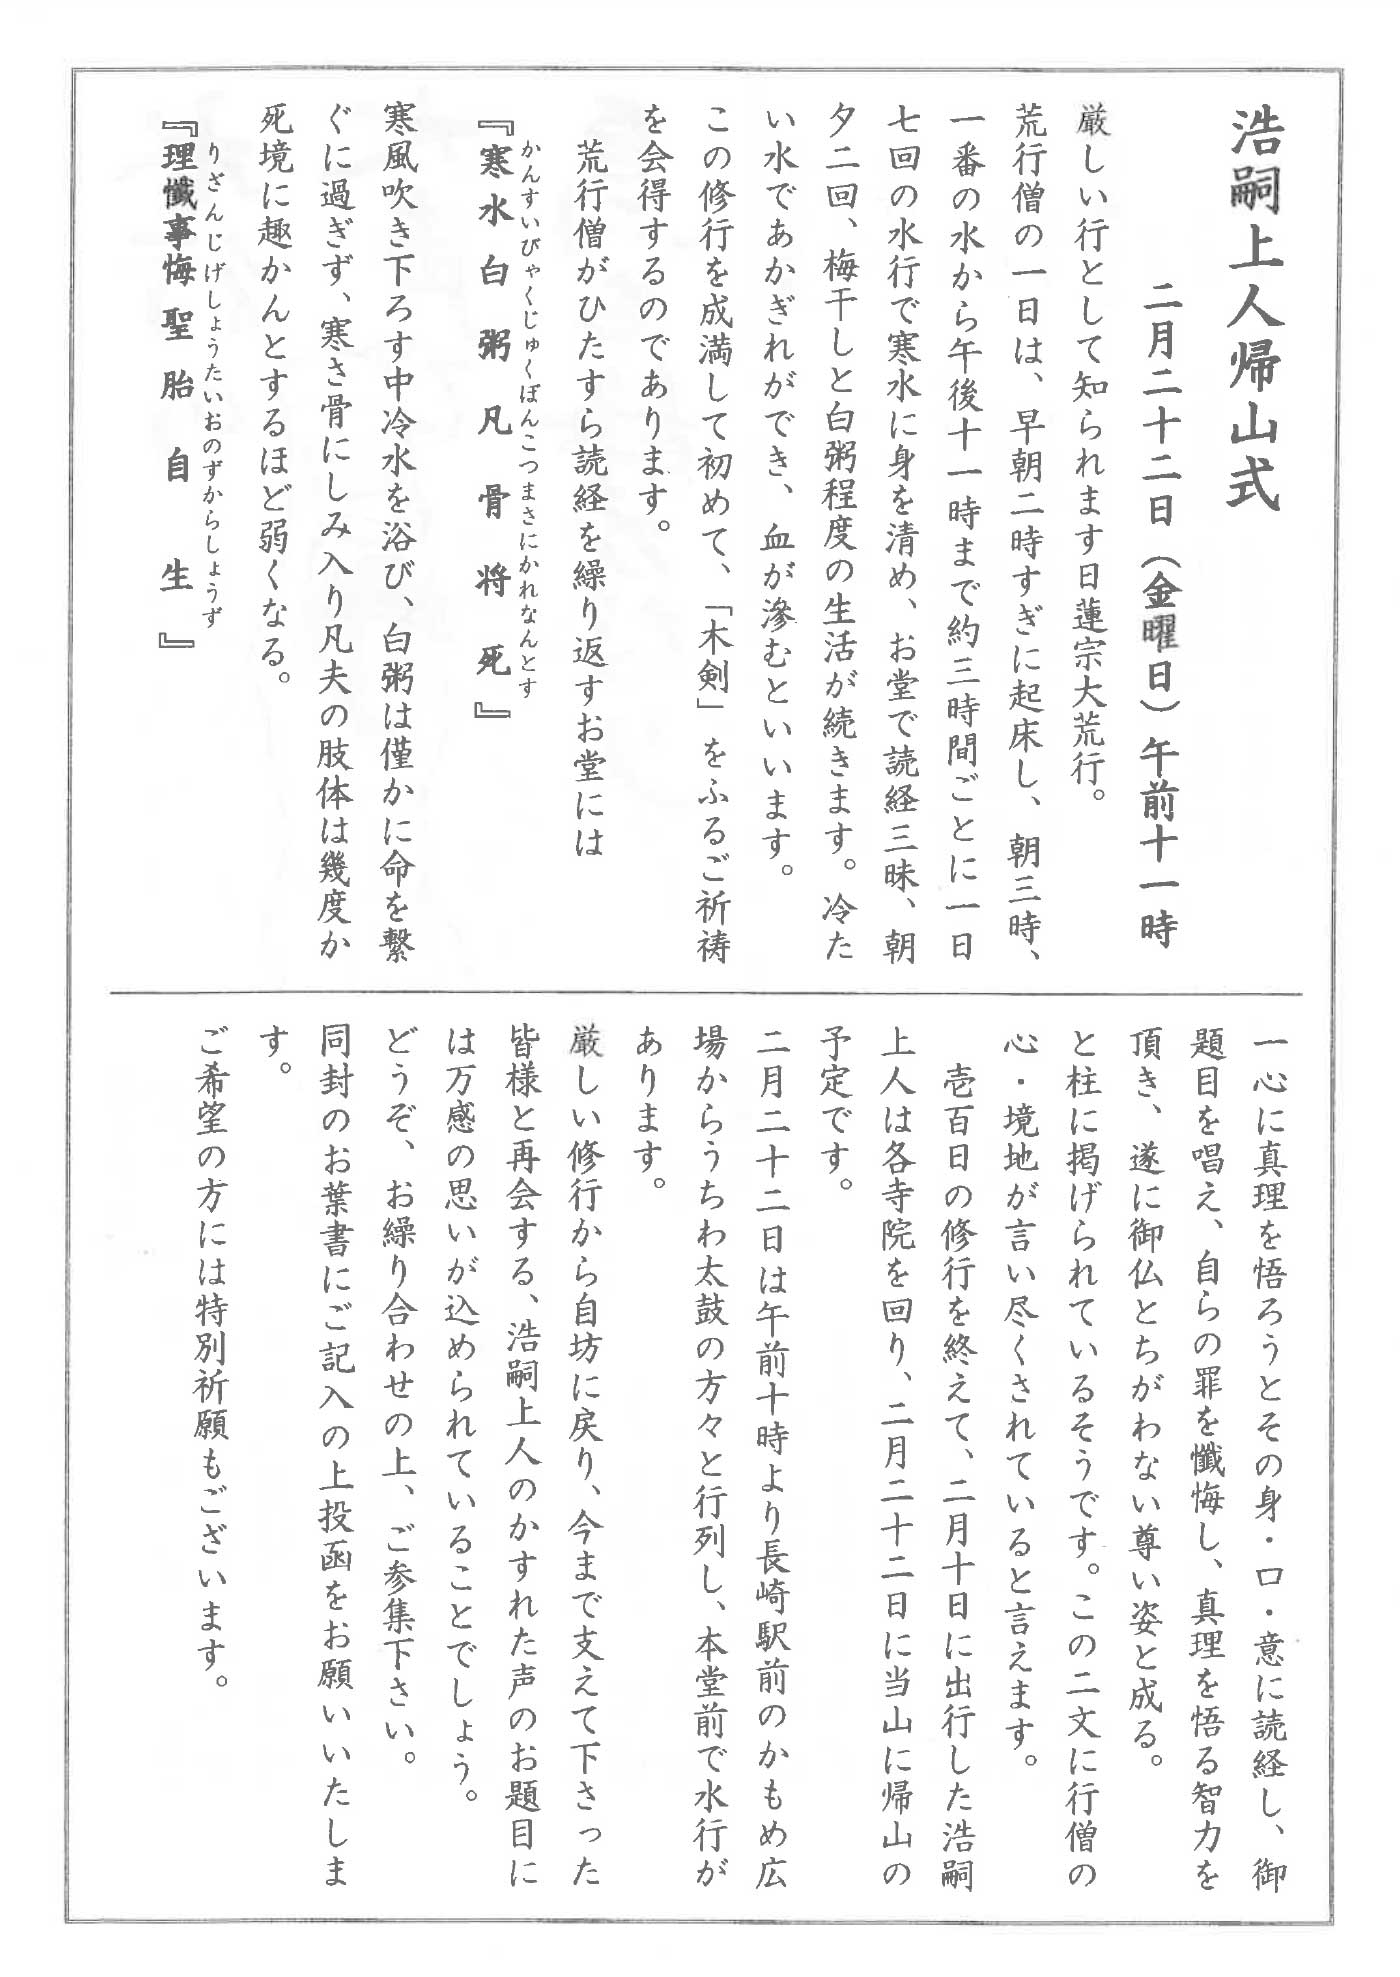 浩嗣上人帰山式
二月二十二日(金曜日)午前十一時
厳しい行として知られます日蓮宗大荒行。
荒行僧の一日は、早朝二時すぎに起床し、朝三時、
一番の水から午後十一時まで約三時間ごとに一日
七回の水行で寒水に身を清め、お堂で読経三昧、朝
夕二回、梅干しと白粥程度の生活が続きます。冷た
い水であかぎれができ、血が滲むといいます。
この修行を成満して初めて、「木剣」をふるご祈祷
を会得するのであります。
荒行僧がひたすら読経を繰り返すお堂には
かんすいびゃくじゅくぼんこつまさにかれなんとす
『寒水白粥凡骨将死』
寒風吹き下ろす中冷水を浴び、白粥は僅かに命を繋
ぐに過ぎず、寒さ骨にしみ入り凡夫の肢体は幾度か
死境に趣かんとするほど弱くなる。
りざんじげしょうたいおのずからしょうず
『理懺事悔聖胎自生』
一心に真理を悟ろうとその身・口・意に読経し、御
題目を唱え、自らの罪を懺悔し、真理を悟る智力を
頂き、遂に御仏とちがわない尊い姿と成る。
と柱に掲げられているそうです。この二文に行僧の
心・境地が言い尽くされていると言えます。
壱百日の修行を終えて、二月十日に出行した浩嗣
上人は各寺院を回り、二月二十二日に当山に帰山の
予定です。
二月二十二日は午前十時より長崎駅前のかもめ広
場からうちわ太鼓の方々と行列し、本堂前で水行が
あります。
厳しい修行から自坊に戻り、今まで支えて下さった
皆様と再会する、浩嗣上人のかすれた声のお題目に
は万感の思いが込められていることでしょう。
どうぞ、お繰り合わせの上、ご参集下さい。
同封のお葉書にご記入の上投函をお願いいたしま
す。
ご希望の方には特別祈願もございます。